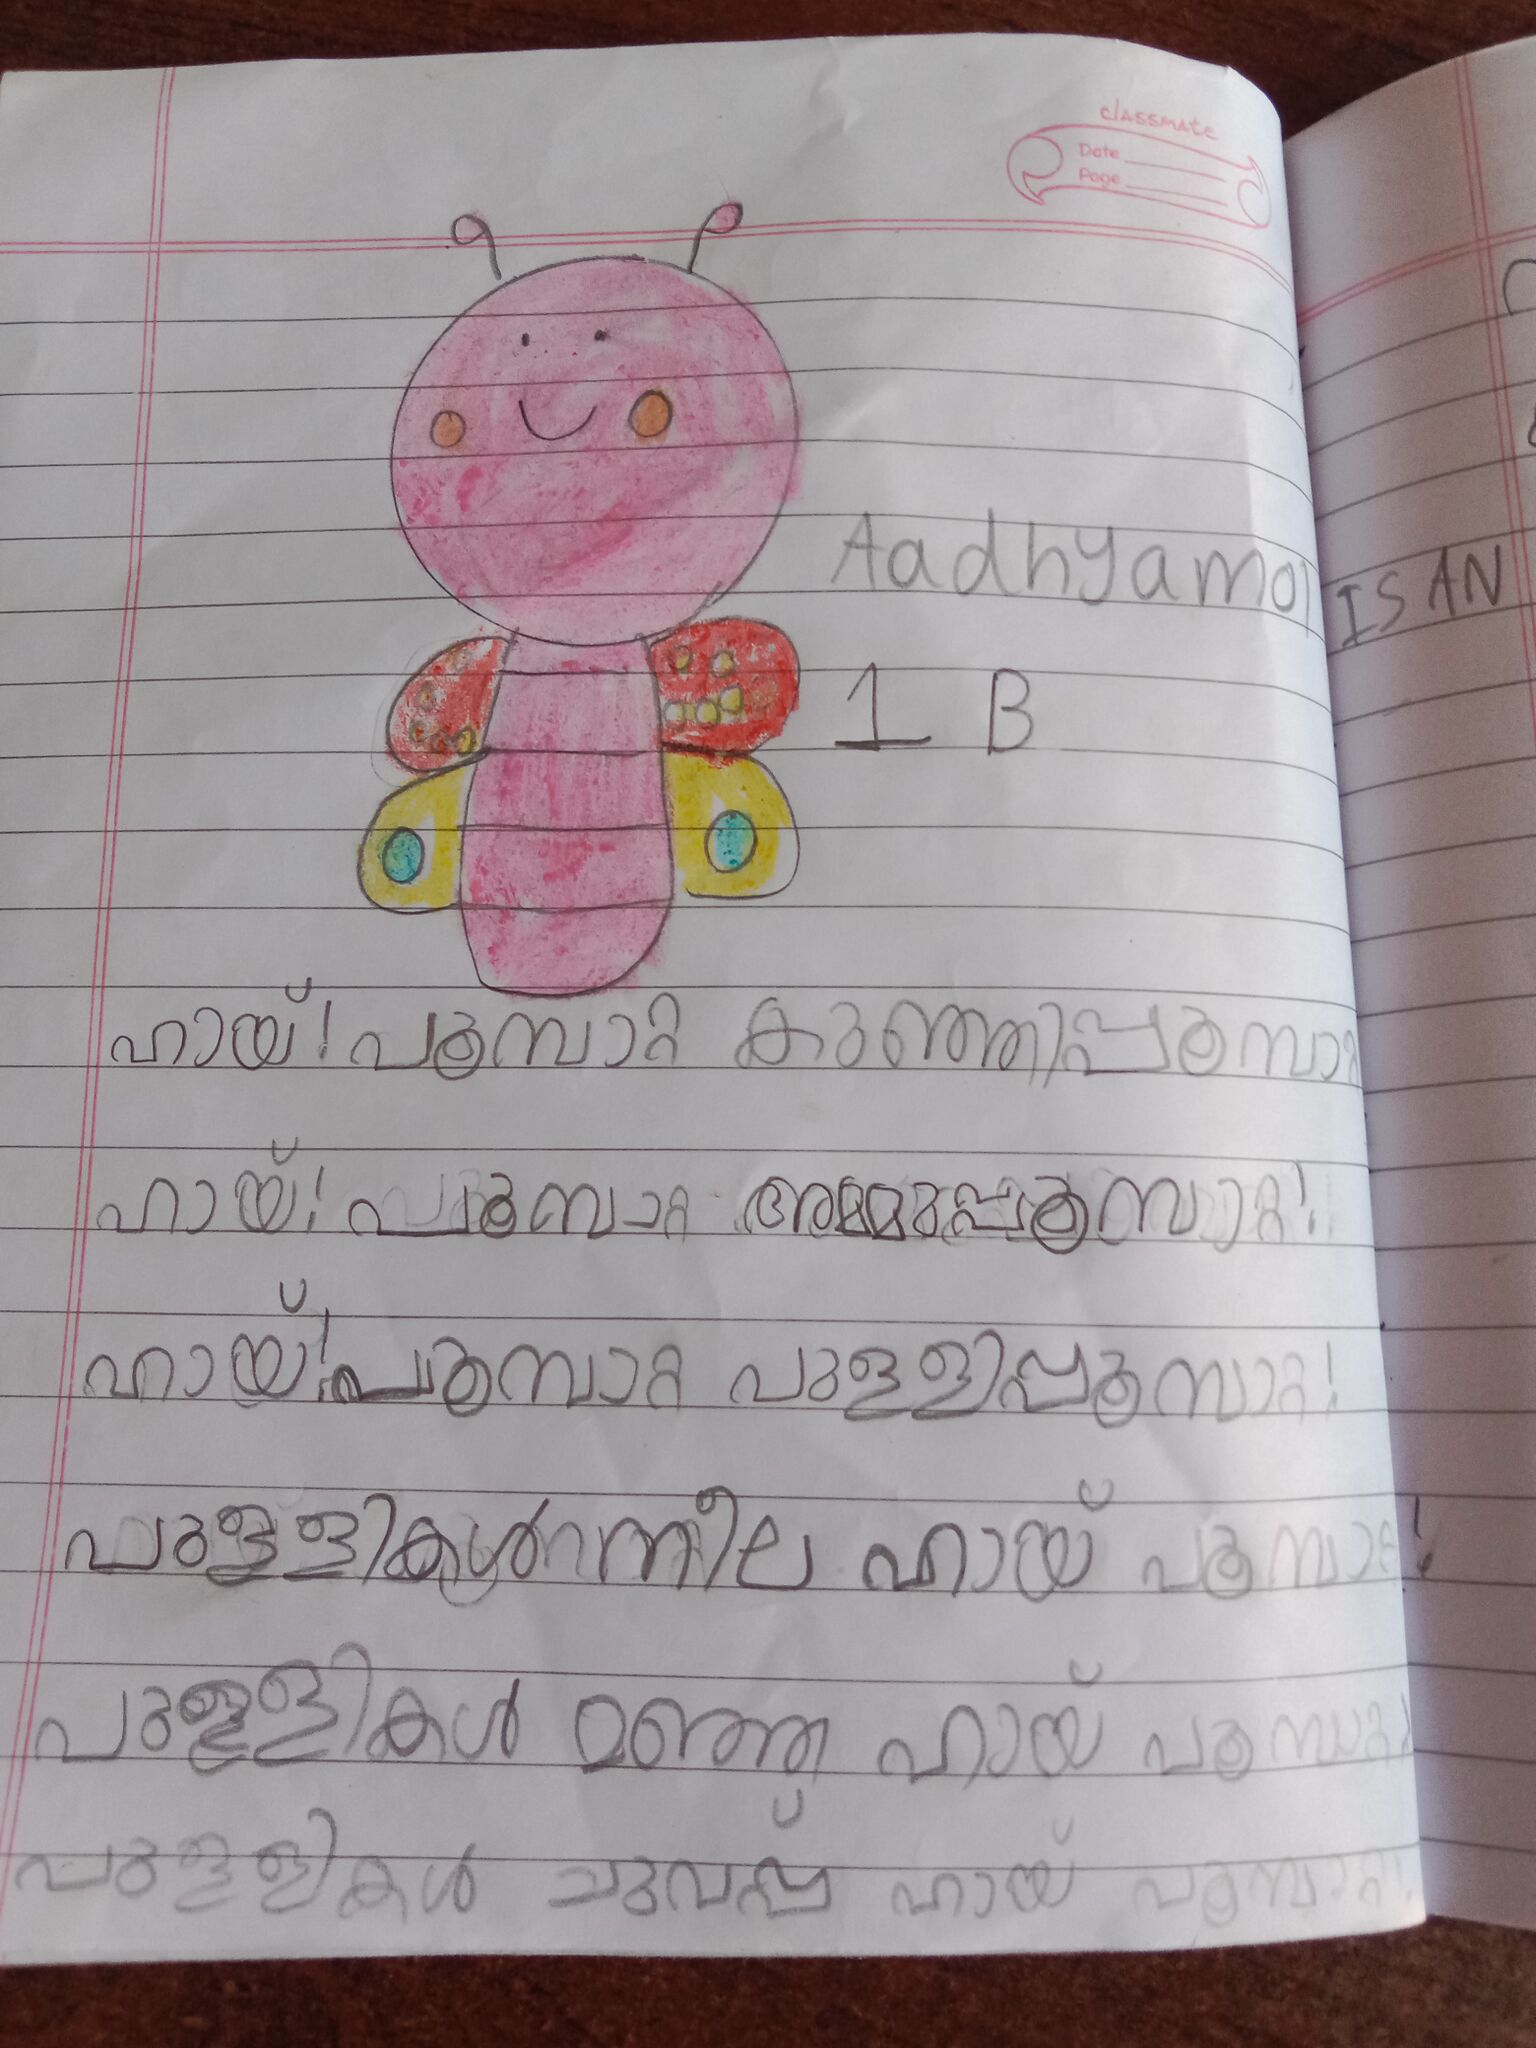 classmate
Date
Page
Aadhyamol IS AN
1 B
ഹായ്! പൂമ്പാറ്റ കുഞ്ഞിപ്പൂമ്പാറ്റ
ഹായ്! പൂമ്പാറ്റ അമ്മപ്പൂമ്പാറ്റ!
ഹായ്! പൂമ്പാറ്റ പുള്ളിപ്പൂമ്പാറ്റ!
പുള്ളികൾ നീല ഹായ് പൂമ്പാറ്റ!
പുള്ളികൾ മഞ്ഞ ഹായ് പൂമ്പാറ്റ!
പുള്ളികൾ ചുവപ്പ് ഹായ് പൂമ്പാറ്റ!